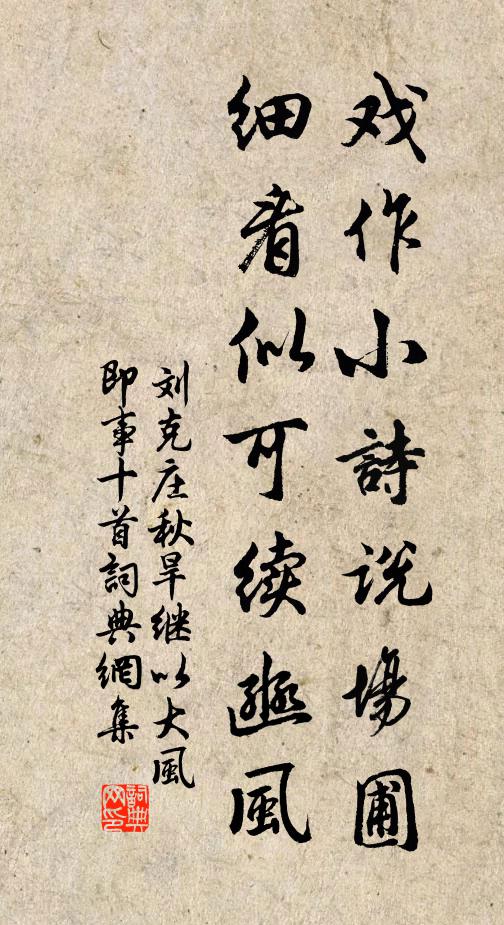 戏作小詩说場圃
细看似可续豳風
刘克庄秋旱继以大風
即事十首詞典網集
詞典
网印